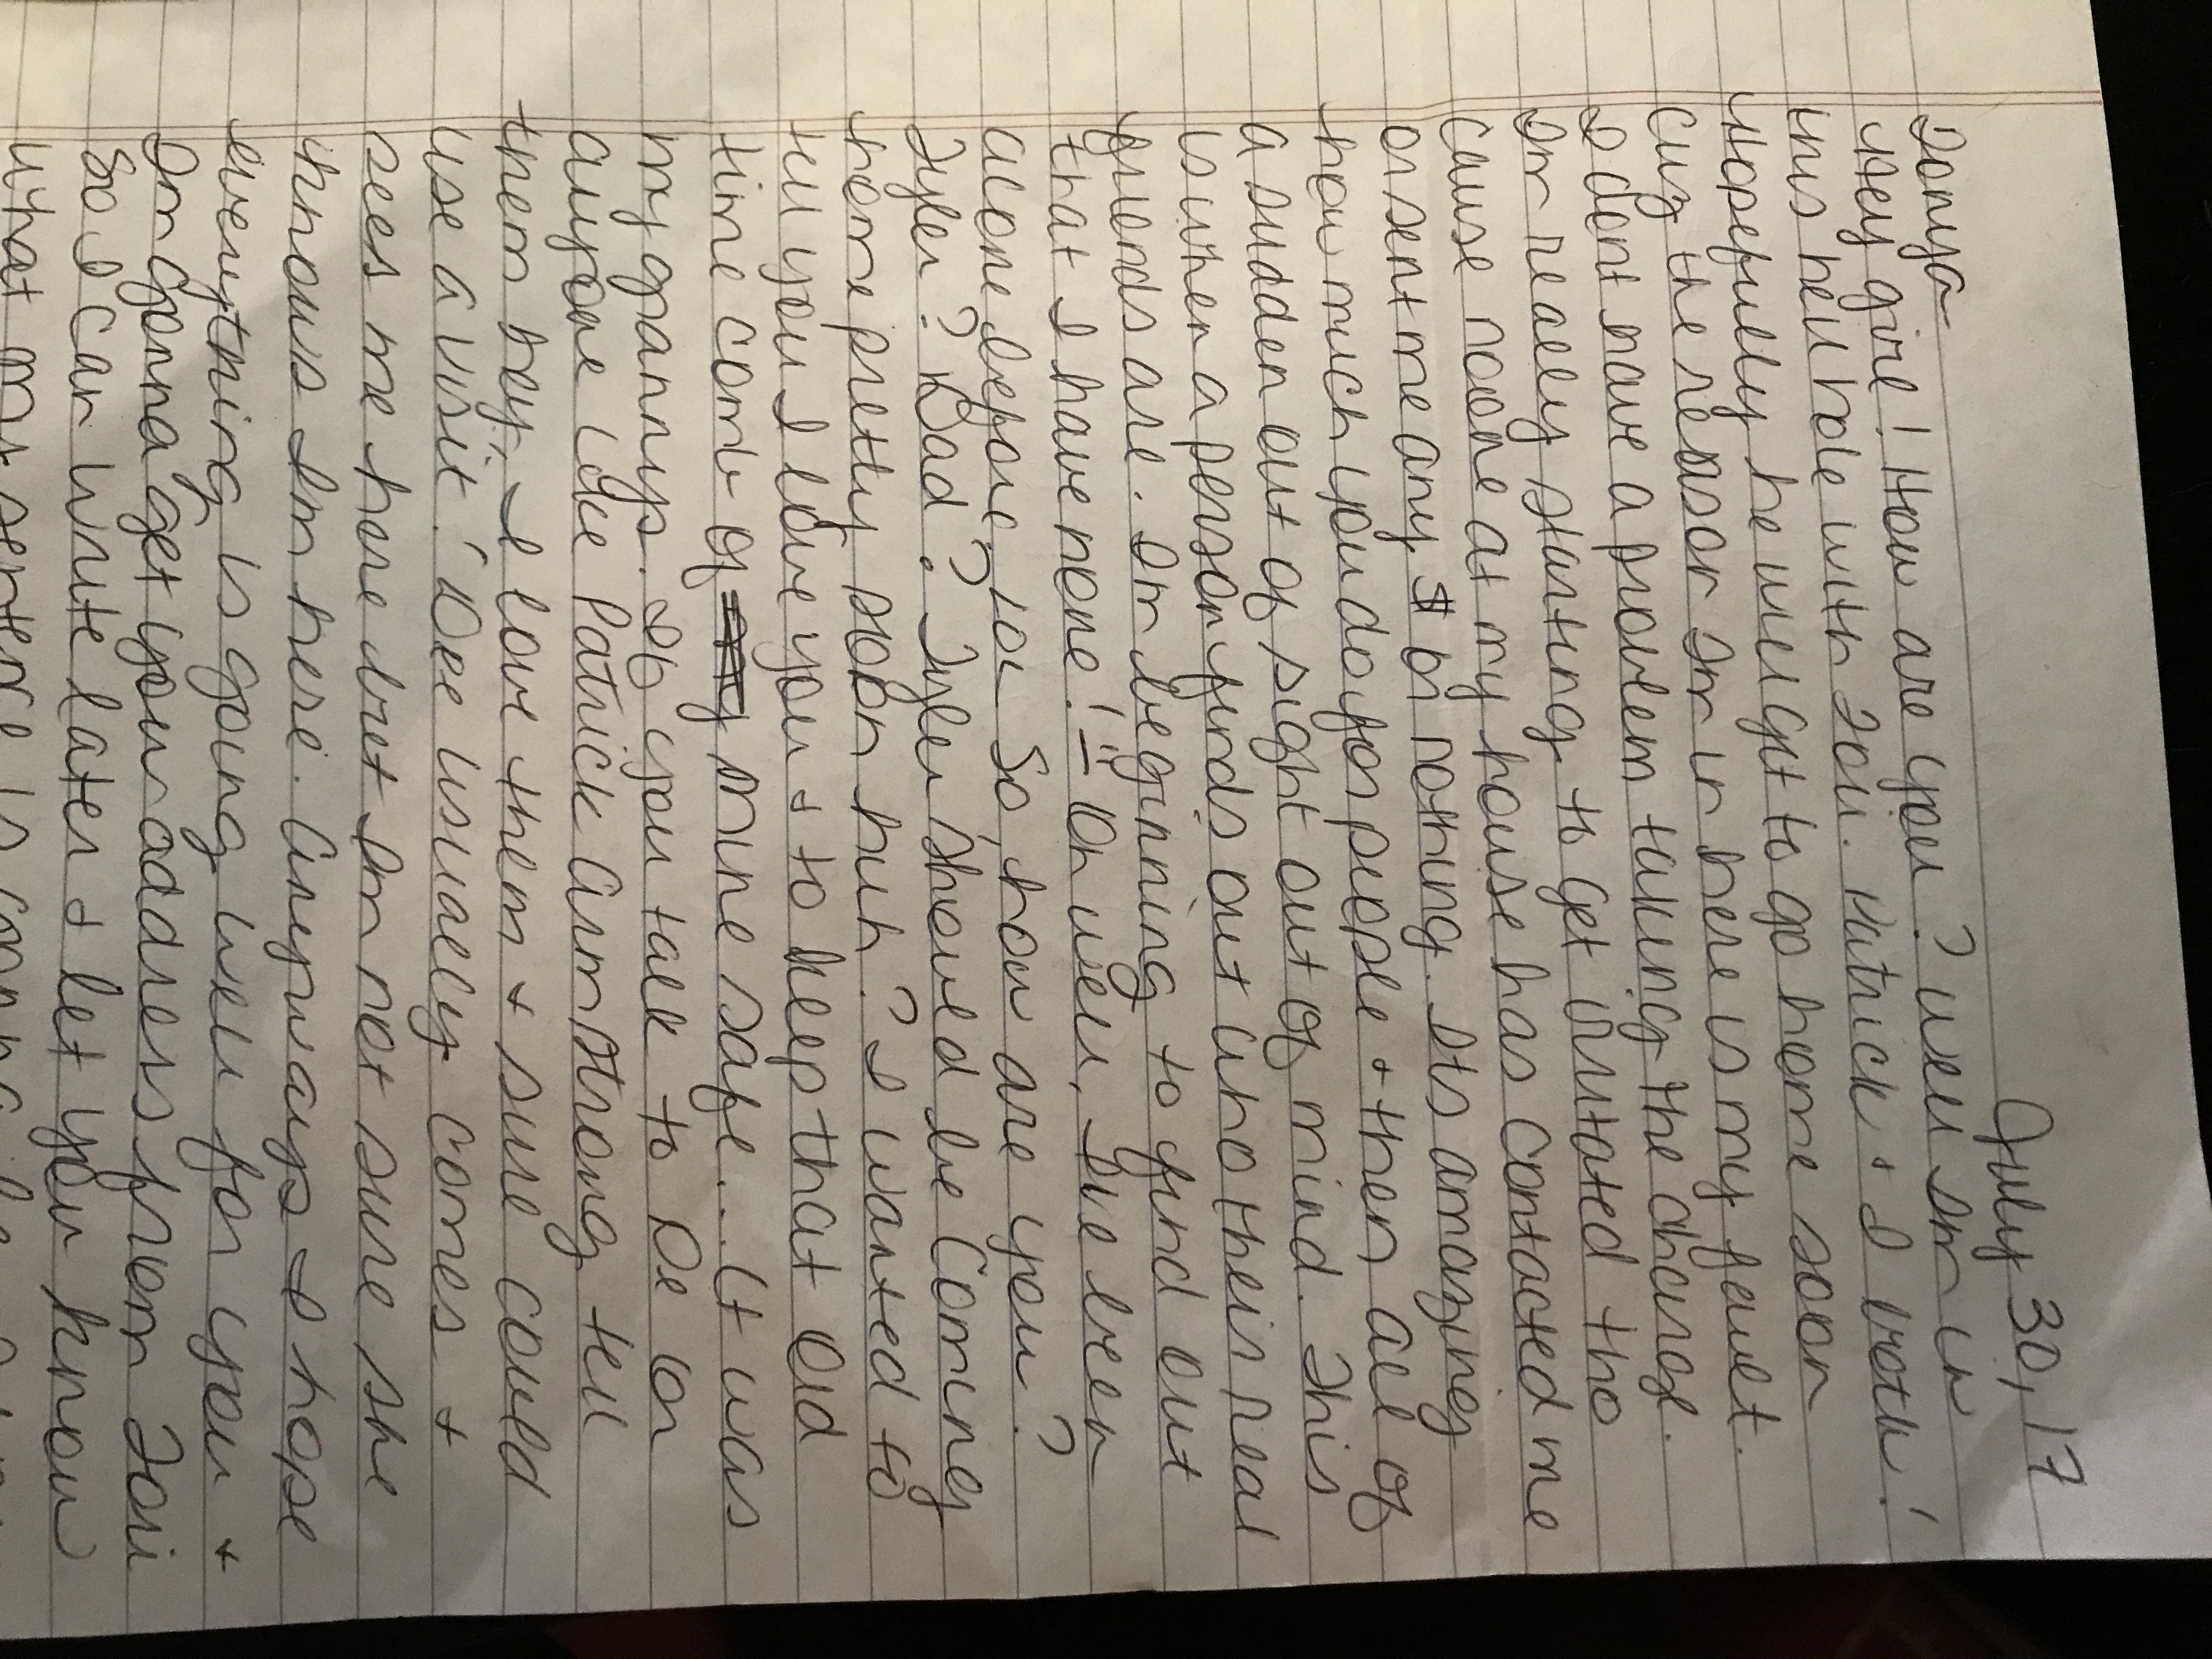 July 30, 17
Tonya
Hey girl! How are you? Well Im in
this hell hole with Tori. Patrick + I both!
Hopefully he will get to go home soon
cuz the reason Im in here is my fault.
I dont have a problem taking the charge.
Im really starting to get irritated tho
cause noone at my house has contacted me
or sent me any $ or nothing. Its amazing
how much you do for people + then all of
a sudden out of sight out of mind. This
is when a person finds out who their real
friends are. Im beginning to find out
that I have none! Oh well, Ive been
alone before? So, how are you?
Tyler? Dad? Tyler should be coming
home pretty soon huh? I wanted to
tell you I love you + to keep that old
time comb of my mine safe... it was
my grannys. If you talk to De or
anyone like Patrick Armstrong tell
them hey, I love them + sure could
use a visit! Dee usually comes +
sees me here but Im not sure she
knows Im here. Anyways I hope
everything is going well for you +
Im gonna get your address from Tori
So I can write later + let you know
what my sentence is